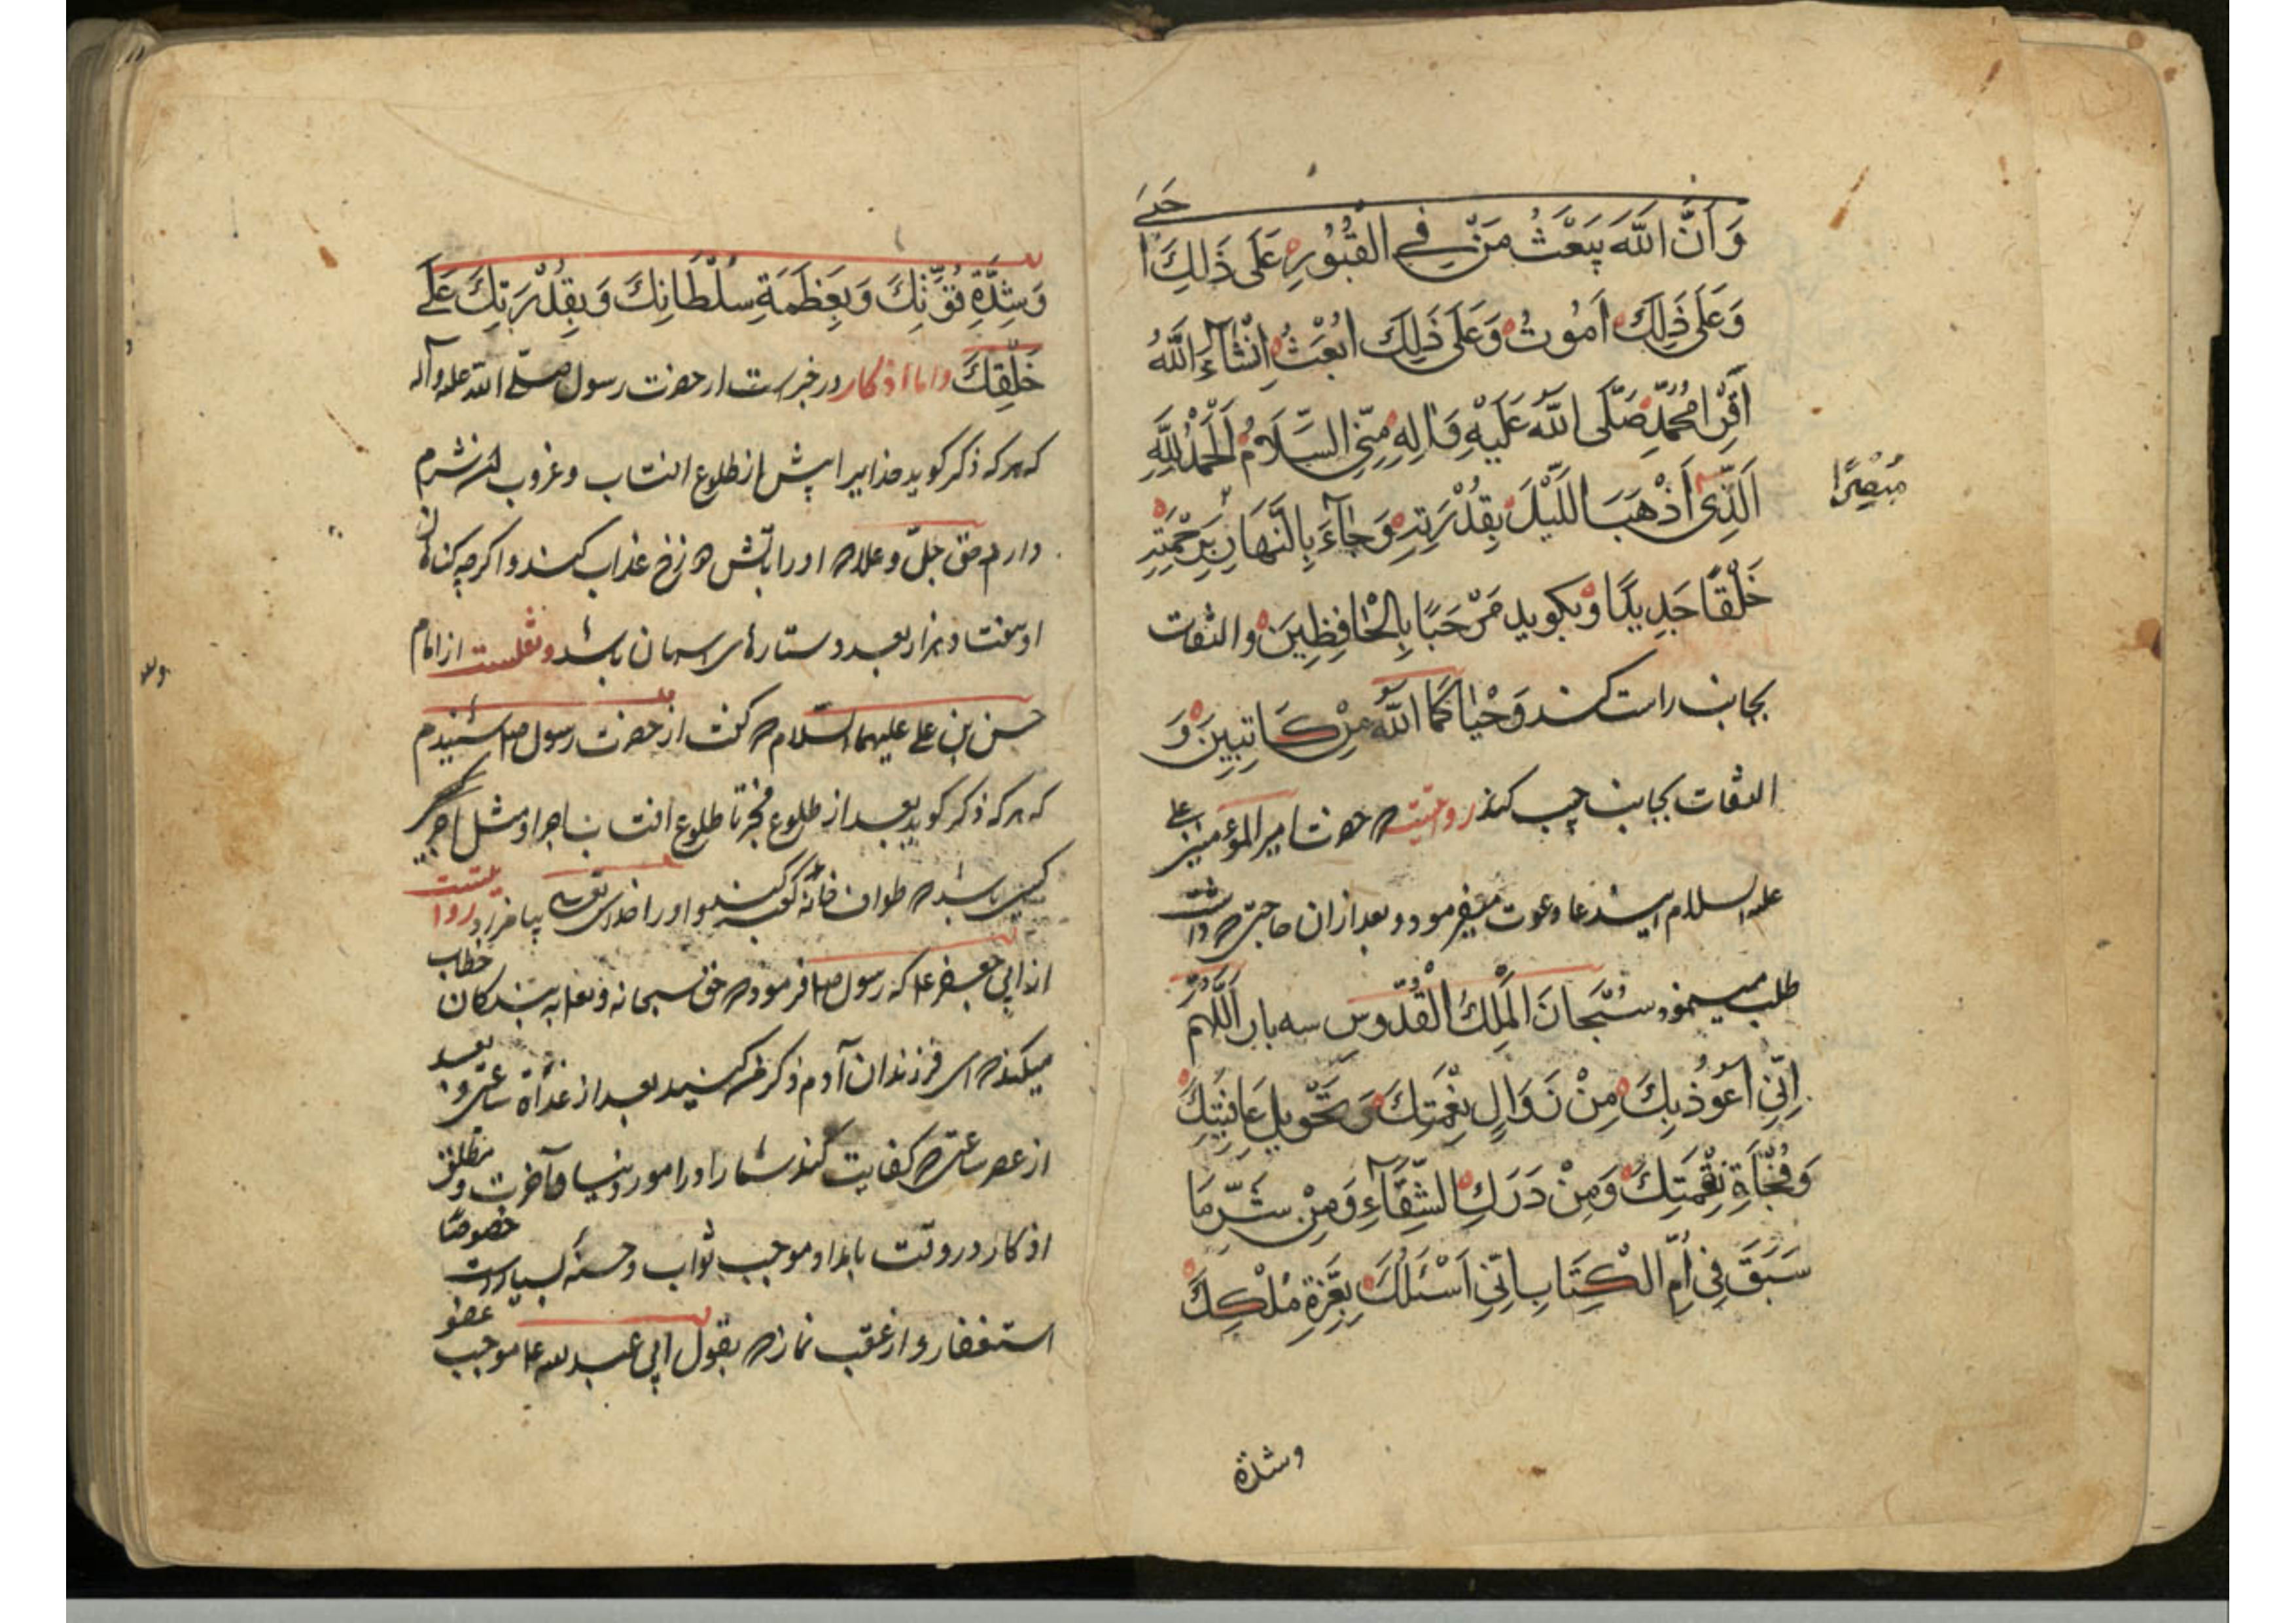 وَاَنَّ اللّٰهَ يَبْعَثُ مَنْ فِي الْقُبُوْرِ عَلَى ذَلِكَ اَحْيَىٰ
وَعَلَى ذَلِكَ اَمُوتُ وَعَلَى ذَلِكَ اُبْعَثُ اِنْشَآءَ اللّٰهُ
اَقْرِأْ مُحَمَّدٍ صَلَّى اللّٰهُ عَلَيْهِ وَاٰلِهِ مِنِّي السَّلَامُ اَلْحَمْدُ لِلّٰهِ
اَلَّذِي اَذْهَبَ اللَّيْلَ بِقُدْرَتِهِ وَجَآءَ بِالنَّهَارِ بِرَحْمَتِهِ
مُبْصِرًا
خَلْقًا جَدِيدًا و بكويد مَرْحَبًا بِالْحَافِظِينَ و التفات
بجانب راست كند وَحَيَّاكُمَا اللّٰهُ مِنْ كَاتِبِينَ وَ
التفات بجانب چپ كند روايتست كه حضرت امير المؤمنين على
عليه السلام اين دعا دعوت ميفرمود و بعد از آن حاجتى كه داشت
طلب مينمود سُبْحَانَ الْمَلِكِ الْقُدُّوسِ سه بار اَللّٰهُمَّ
اِنِّي اَعُوذُ بِكَ مِنْ زَوَالِ نِعْمَتِكَ وَ تَحْوِيلِ عَافِيَتِكَ
وَفُجْأَةِ نِقْمَتِكَ وَمِنْ دَرَكِ الشَّقَآءِ وَمِنْ شَرِّ مَا
سَبَقَ فِي اُمِّ الْكِتَابِ اِنِّي اَسْئَلُكَ بِعِزَّةِ مُلْكِكَ
وشدة
وَشِدَّةِ قُوَّتِكَ وَبِعَظَمَةِ سُلْطَانِكَ وَبِقُدْرَتِكَ عَلَى
خَلْقِكَ و اما اذكار در خبرست از حضرت رسول صلى الله عليه وآله
كه هر كه ذكر كويد خدايرا پيش از طلوع افتاب و غروب
حق جلّ و علا او را باتش دوزخ عذاب كند و اكرچه كناهان
او هفتاد هزار بعدد ستارهاى اسمان باشد و نقلست از امام
حسن بن على عليهما السلام كه كفت از حضرت رسول ص شنيدم
كه هر كه ذكر كويد بعد از طلوع فجر تا طلوع افتاب باجر او مثل اجر
كسى باشد كه طواف خانه كعبه كند و او را خداى تعالى بيامرزد روايتست
از ابى جعفر ع كه رسول ص فرموده كه حق سبحانه و تعالى به بندكان خطاب
ميكند كه اى فرزندان آدم ذكر من كنيد بعد از غداة ساعتى و بعد
از عصر ساعتى كه كفايت كند شما را در امور دنيا و آخرت و مطلق
اذكار در وقت بامداد موجب ثواب و حسنهٔ بسيارست خصوصًا
استغفار و از عقب نماز كه بقول ابى عبد الله ع موجب عفو